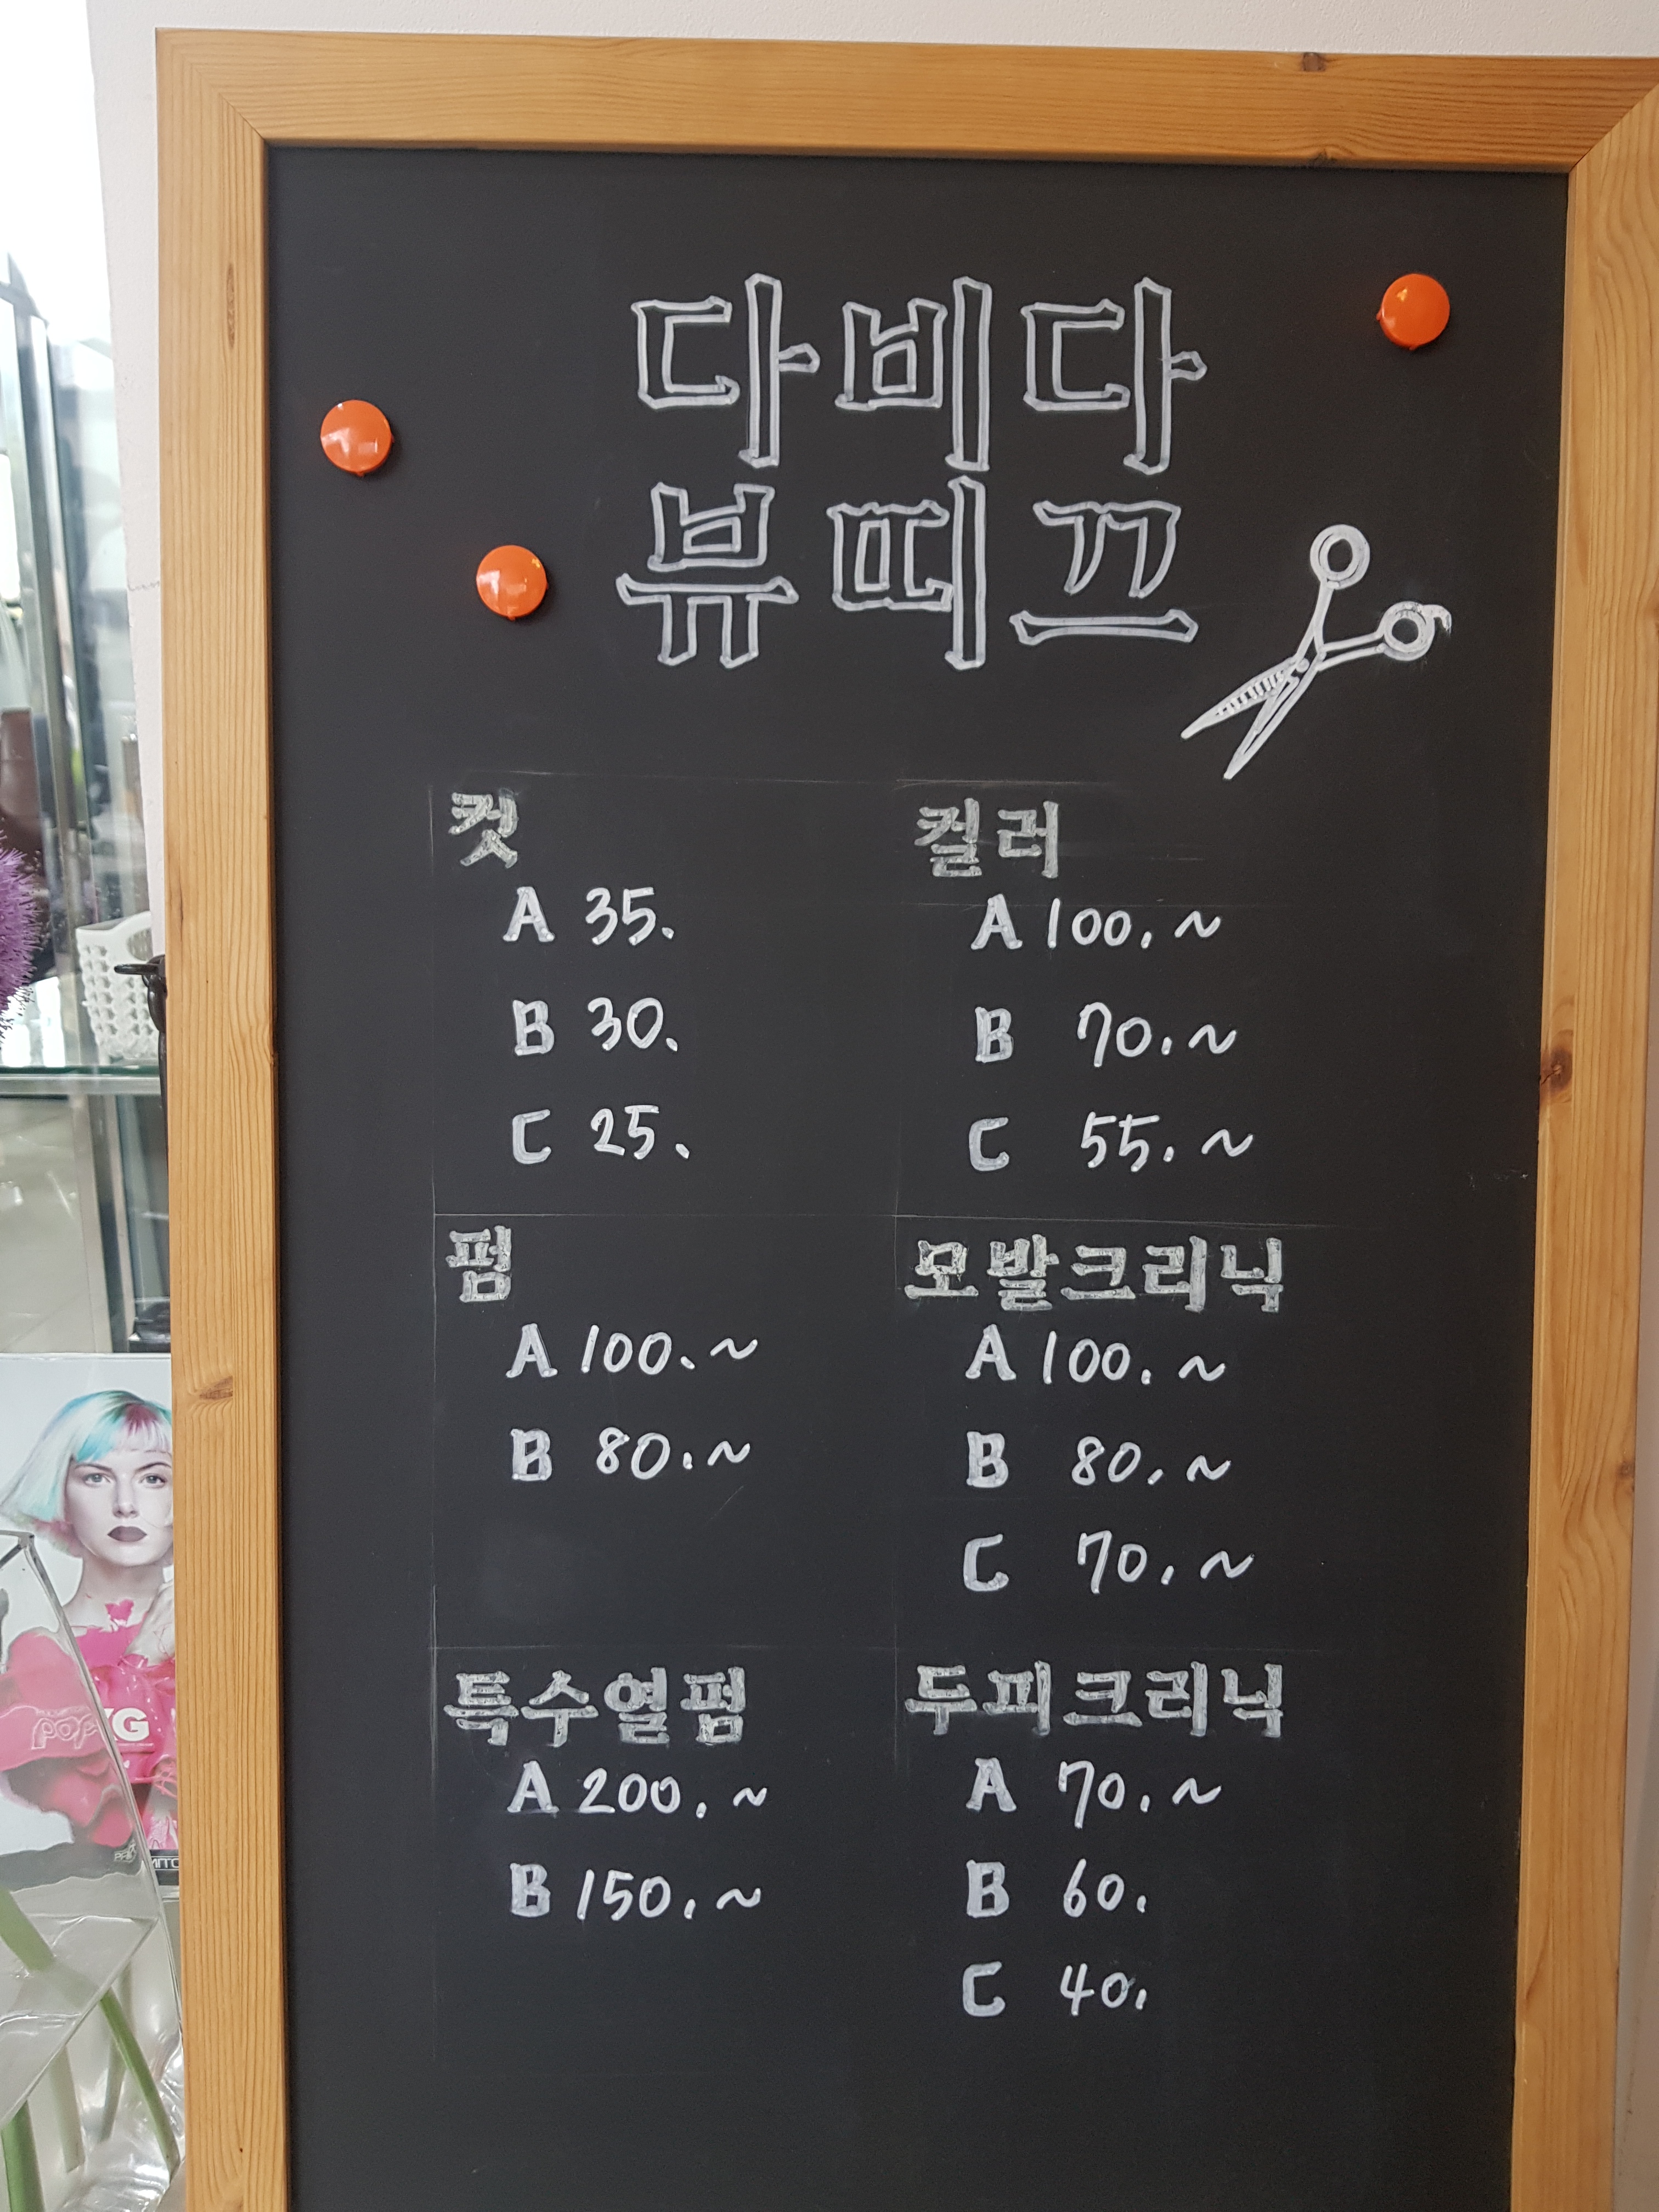 다비다
뷰띠끄
컷
A 35.
B 30.
C 25.
컬러
A 100.~
B 70.~
C 55.~
펌
A 100.~
B 80.~
모발크리닉
A 100.~
B 80.~
C 70.~
특수열펌
A 200.~
B 150.~
두피크리닉
A 70.~
B 60.
C 40.
POP
XG